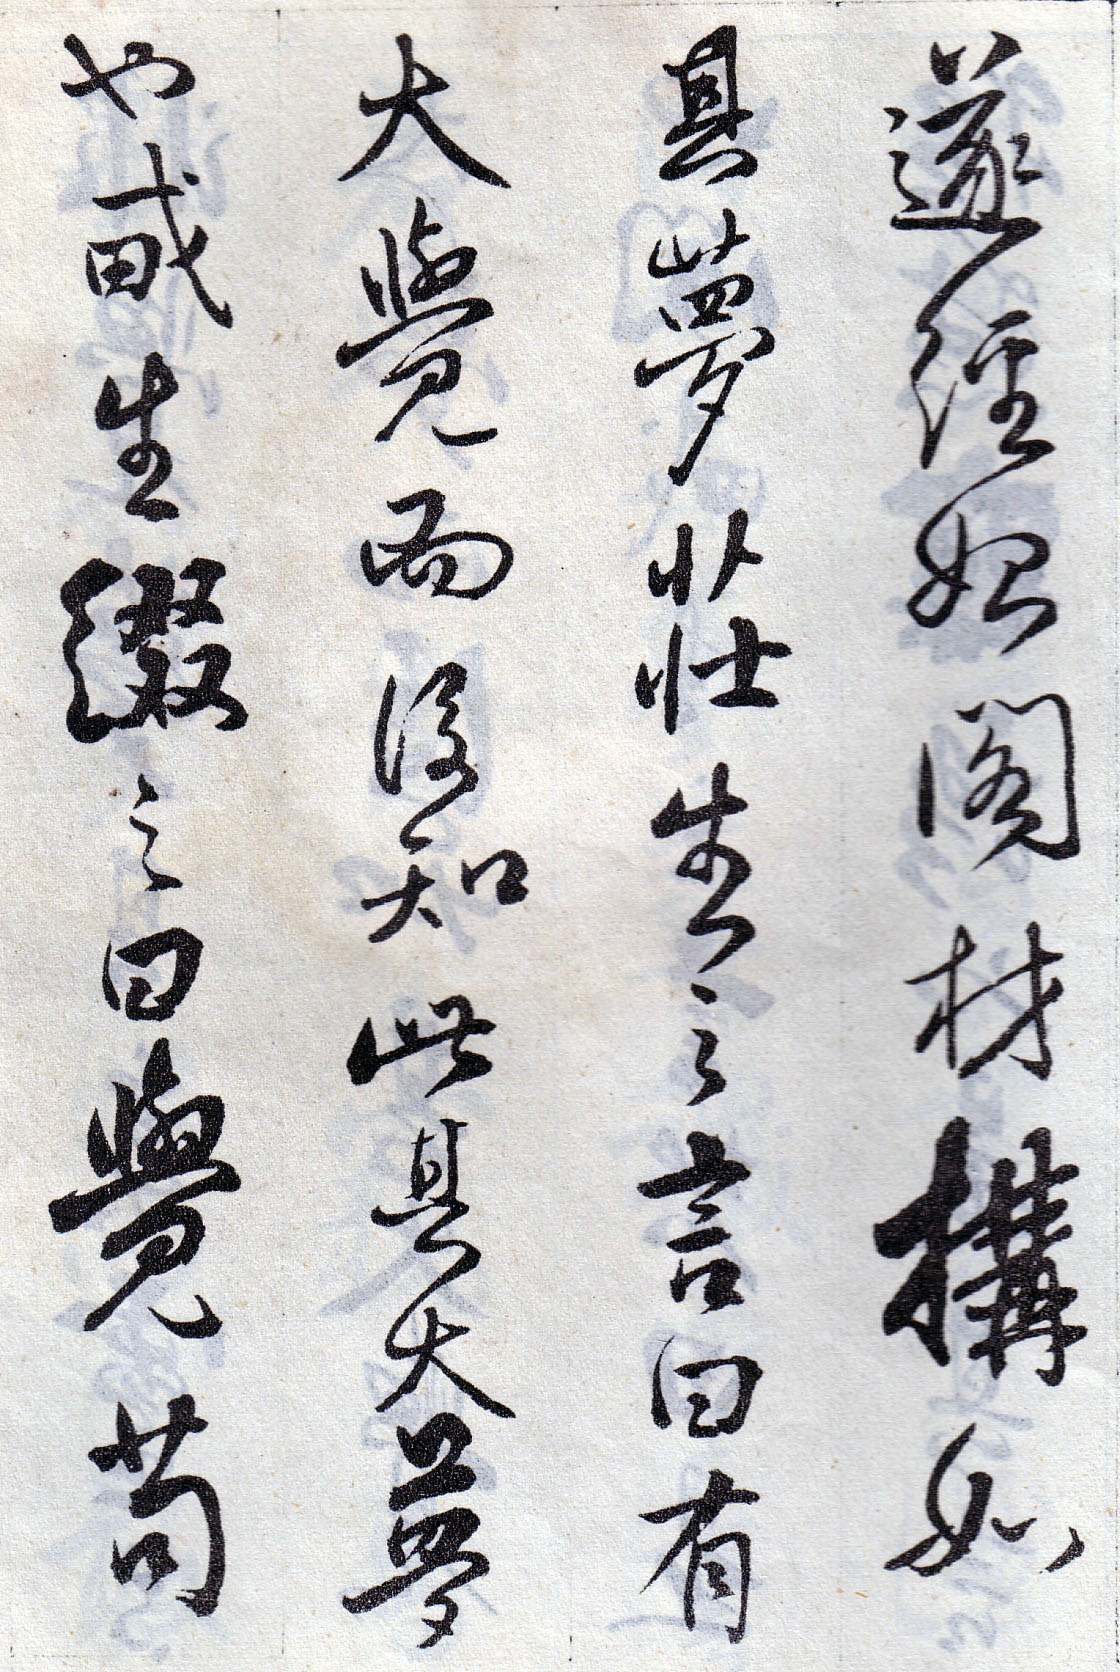 遂經始閣材構如
其夢壯壯生之言曰有
大覺而後知此其大夢
也戓生綴之曰覺苟